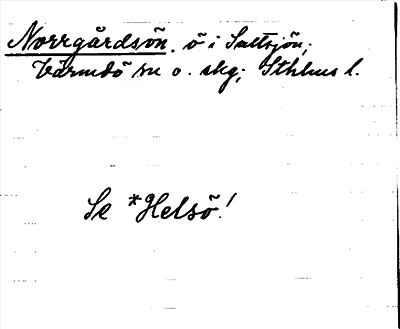 Norrgårdsön, ö i Saltsjön;
Värmdö sn o. skg; Sthlms l.
Se *Helsö!